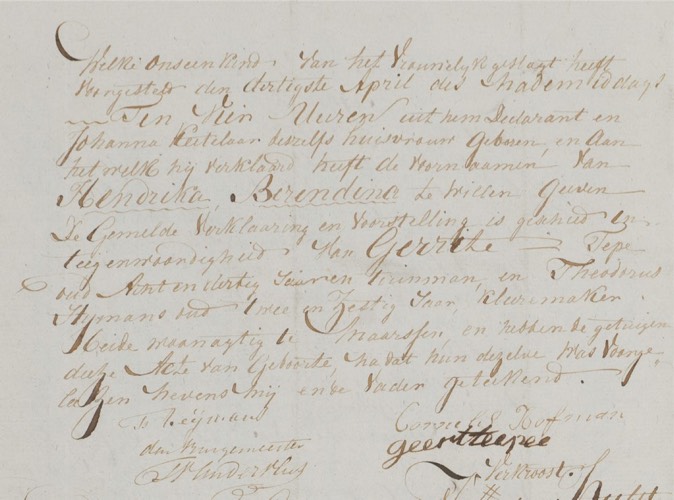 Welke ons een kind van het Vrouwelijk geslagt heeft
voorgesteld den dertigste April des Nademiddags
Ten Vier Uuren uit hem Declarant en
Johanna Ketelaar deszelfs huisvrouw geboren, en aan
het welk hij verklaard heeft de voornaamen van
Hendrika, Berendina te willen Geeven
De Gemelde Verklaaring en Voorstelling is geschied in
teegenwoordigheid van Gerritie Tepe
oud Acht en dertig Jaaren tuinman, en Theodorus
Heymans oud twee en Zestig Jaar, kleermaker.
Beide woonagtig te Maarssen, en hebben de getuigen
deeze Acte van Geboorte, na dat hun dezelve was voorge
leezen nevens mij en de vader geteekend.
T Heijmans
Cornelis Hofman
den Burgemeester
geertteepee
Verkroost